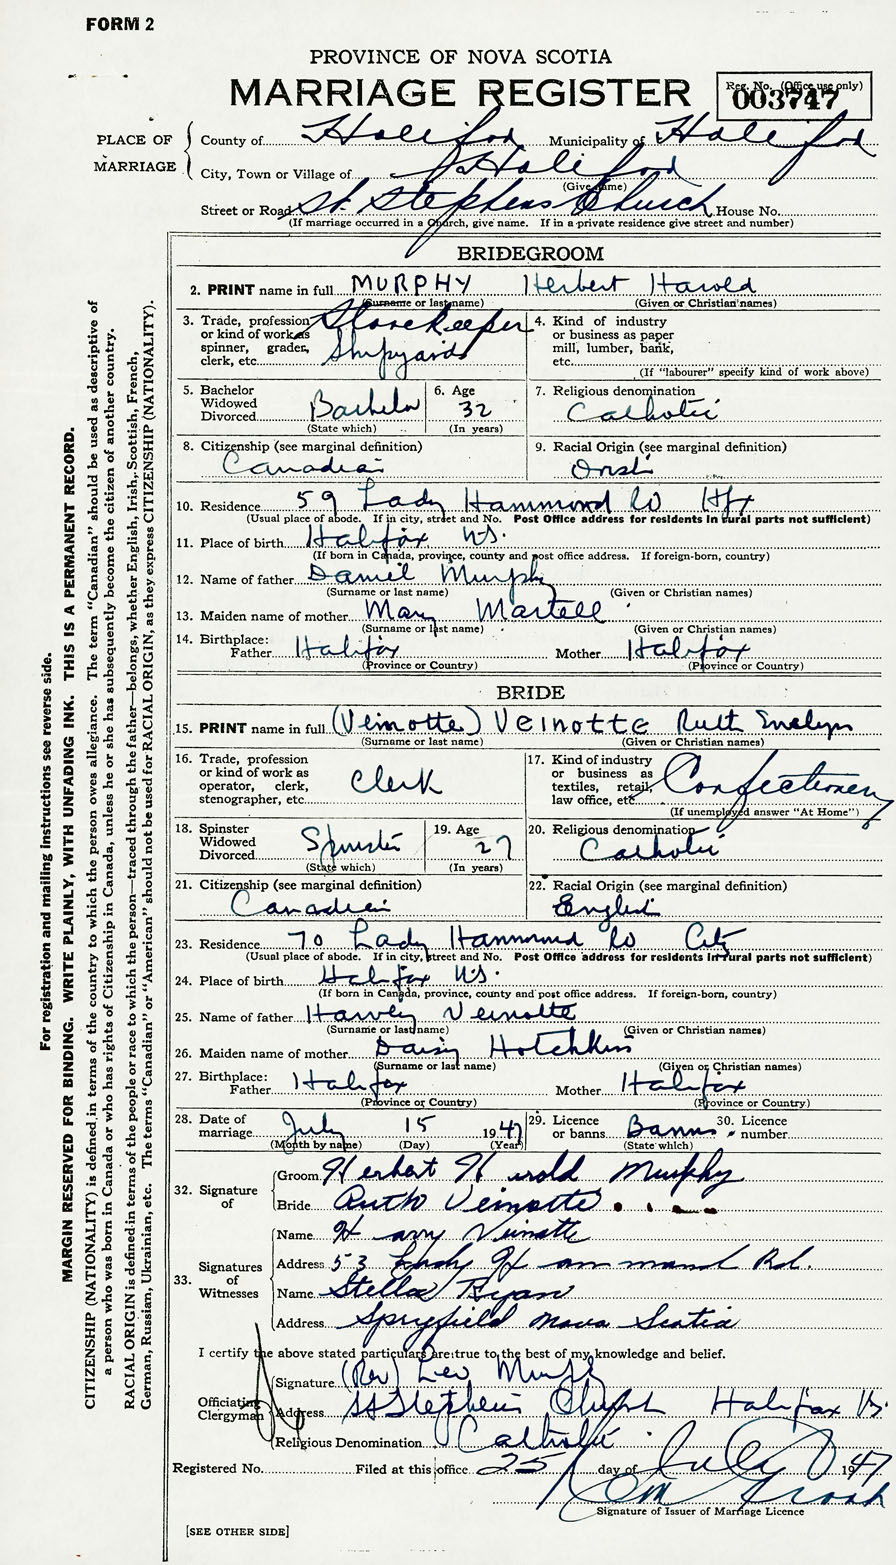 FORM 2
PROVINCE OF NOVA SCOTIA
MARRIAGE REGISTER
Reg. No. (Office use only)
003747
PLACE OF MARRIAGE
County of Halifax Municipality of Halifax
City, Town or Village of Halifax
(Give name)
Street or Road St. Stephens Church House No.
(If marriage occurred in a Church, give name. If in a private residence give street and number)
BRIDEGROOM
2. PRINT name in full MURPHY Herbert Harold
(Surname or last name) (Given or Christian names)
3. Trade, profession or kind of work as spinner, grader, clerk, etc. Storekeeper Shipyards
4. Kind of industry or business as paper mill, lumber, bank, etc.
(If "labourer" specify kind of work above)
5. Bachelor Widowed Divorced Bachelor
(State which)
6. Age 32
(In years)
7. Religious denomination Catholic
8. Citizenship (see marginal definition)
Canadian
9. Racial Origin (see marginal definition)
Irish
10. Residence 59 Lady Hammond Rd Hfx
(Usual place of abode. If in city, street and No. Post Office address for residents in rural parts not sufficient)
11. Place of birth Halifax N.S.
(If born in Canada, province, county and post office address. If foreign-born, country)
12. Name of father Daniel Murphy
(Surname or last name) (Given or Christian names)
13. Maiden name of mother Mary Martell
(Surname or last name) (Given or Christian names)
14. Birthplace: Father Halifax Mother Halifax
(Province or Country) (Province or Country)
BRIDE
15. PRINT name in full (Veinotte) VEINOTTE Ruth Evelyn
(Surname or last name) (Given or Christian names)
16. Trade, profession or kind of work as operator, clerk, stenographer, etc. Clerk
17. Kind of industry or business as textiles, retail, law office, etc. Confectionery
(If unemployed answer "At Home")
18. Spinster Widowed Divorced Spinster
(State which)
19. Age 27
(In years)
20. Religious denomination Catholic
21. Citizenship (see marginal definition)
Canadian
22. Racial Origin (see marginal definition)
English
23. Residence 70 Lady Hammond Rd City
(Usual place of abode. If in city, street and No. Post Office address for residents in rural parts not sufficient)
24. Place of birth Halifax N.S.
(If born in Canada, province, county and post office address. If foreign-born, country)
25. Name of father Harvey Veinotte
(Surname or last name) (Given or Christian names)
26. Maiden name of mother Daisy Hotchkiss
(Surname or last name) (Given or Christian names)
27. Birthplace: Father Halifax Mother Halifax
(Province or Country) (Province or Country)
28. Date of marriage July 15 1947
(Month by name) (Day) (Year)
29. Licence or banns Banns
(State which)
30. Licence number
32. Signature of
Groom Herbert Harold Murphy
Bride Ruth Veinotte
33. Signatures of Witnesses
Name Harry Veinotte
Address 53 Lady Hammond Rd.
Name Stella Ryan
Address Spryfield Nova Scotia
I certify the above stated particulars are true to the best of my knowledge and belief.
Officiating Clergyman
Signature (Rev) Leo Murphy
Address St Stephens Church Halifax N.S.
Religious Denomination Catholic
Registered No. Filed at this office 25 day of July 1947
Signature of Issuer of Marriage Licence
[SEE OTHER SIDE]
For registration and mailing instructions see reverse side.
MARGIN RESERVED FOR BINDING. WRITE PLAINLY, WITH UNFADING INK. THIS IS A PERMANENT RECORD.
CITIZENSHIP (NATIONALITY) is defined in terms of the country to which the person owes allegiance. The term "Canadian" should be used as descriptive of
a person who was born in Canada or who has rights of Citizenship in Canada, unless he or she has subsequently become the citizen of another country.
RACIAL ORIGIN is defined in terms of the people or race to which the person—traced through the father—belongs, whether English, Irish, Scottish, French,
German, Russian, Ukrainian, etc. The terms "Canadian" or "American" should not be used for RACIAL ORIGIN, as they express CITIZENSHIP (NATIONALITY).